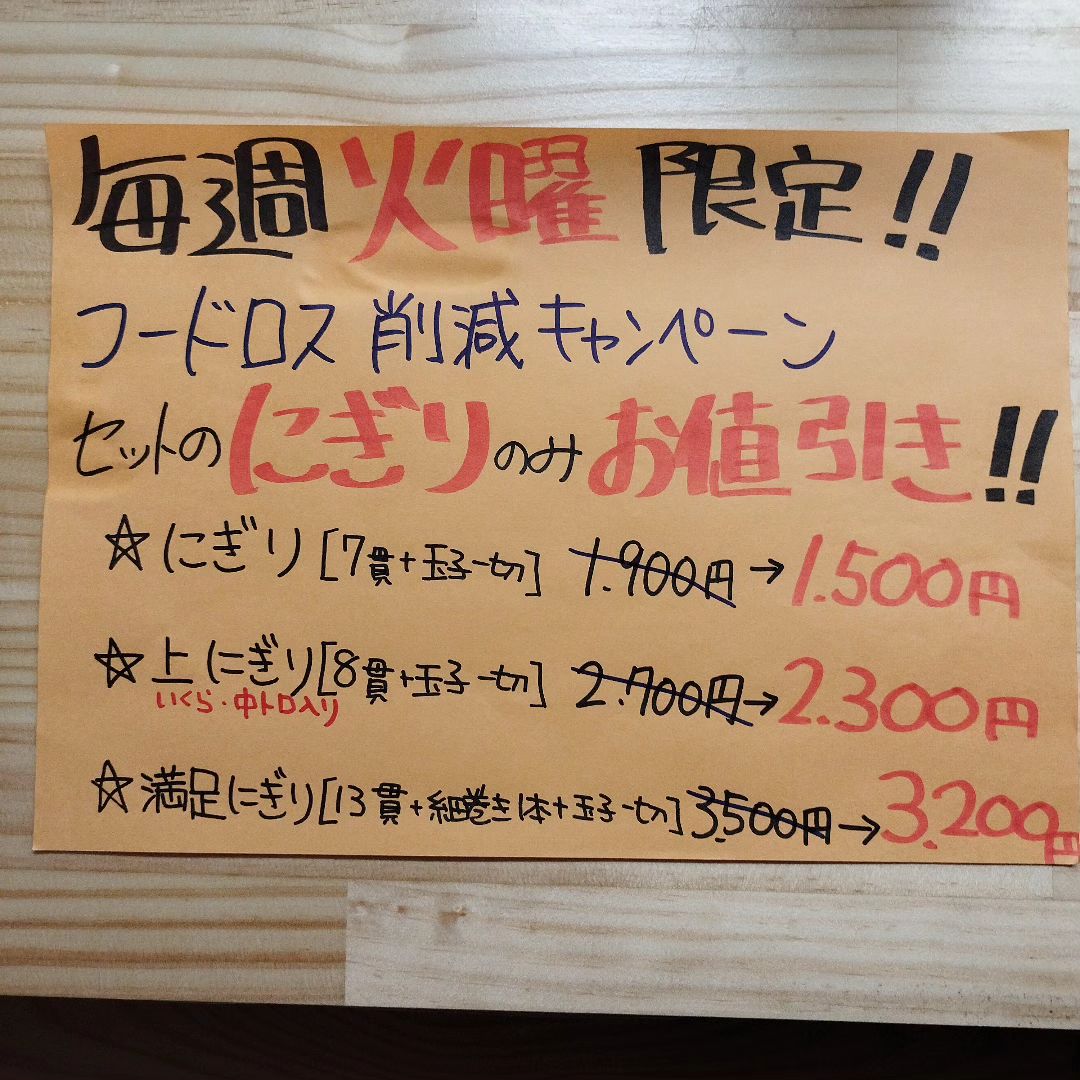 毎週火曜限定!!
フードロス削減キャンペーン
セットのにぎりのみお値引き!!
☆にぎり[7貫+玉子一切] 1.900円→1.500円
☆上にぎり[8貫+玉子一切] 2.700円→2.300円
いくら・中トロ入り
☆満足にぎり[13貫+細巻き1本+玉子一切] 3.500円→3.200円